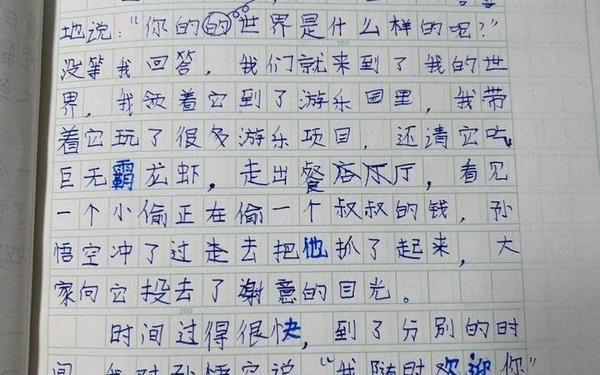 地说：“你的的世界是什么样的呢？”
没等我回答，我们就来到了我的世
界，我领着它到了游乐园里，我带
着它玩了很多游乐项目，还请它吃
巨无霸龙虾，走出餐店厅厅，看见
一个小偷正在偷一个叔叔的钱，孙
悟空冲了过走去把他抓了起来，大
家向它投去了谢意的目光。
200
时间过得很快，到了分别的时
间，我对孙悟空说：“我随时欢迎你”